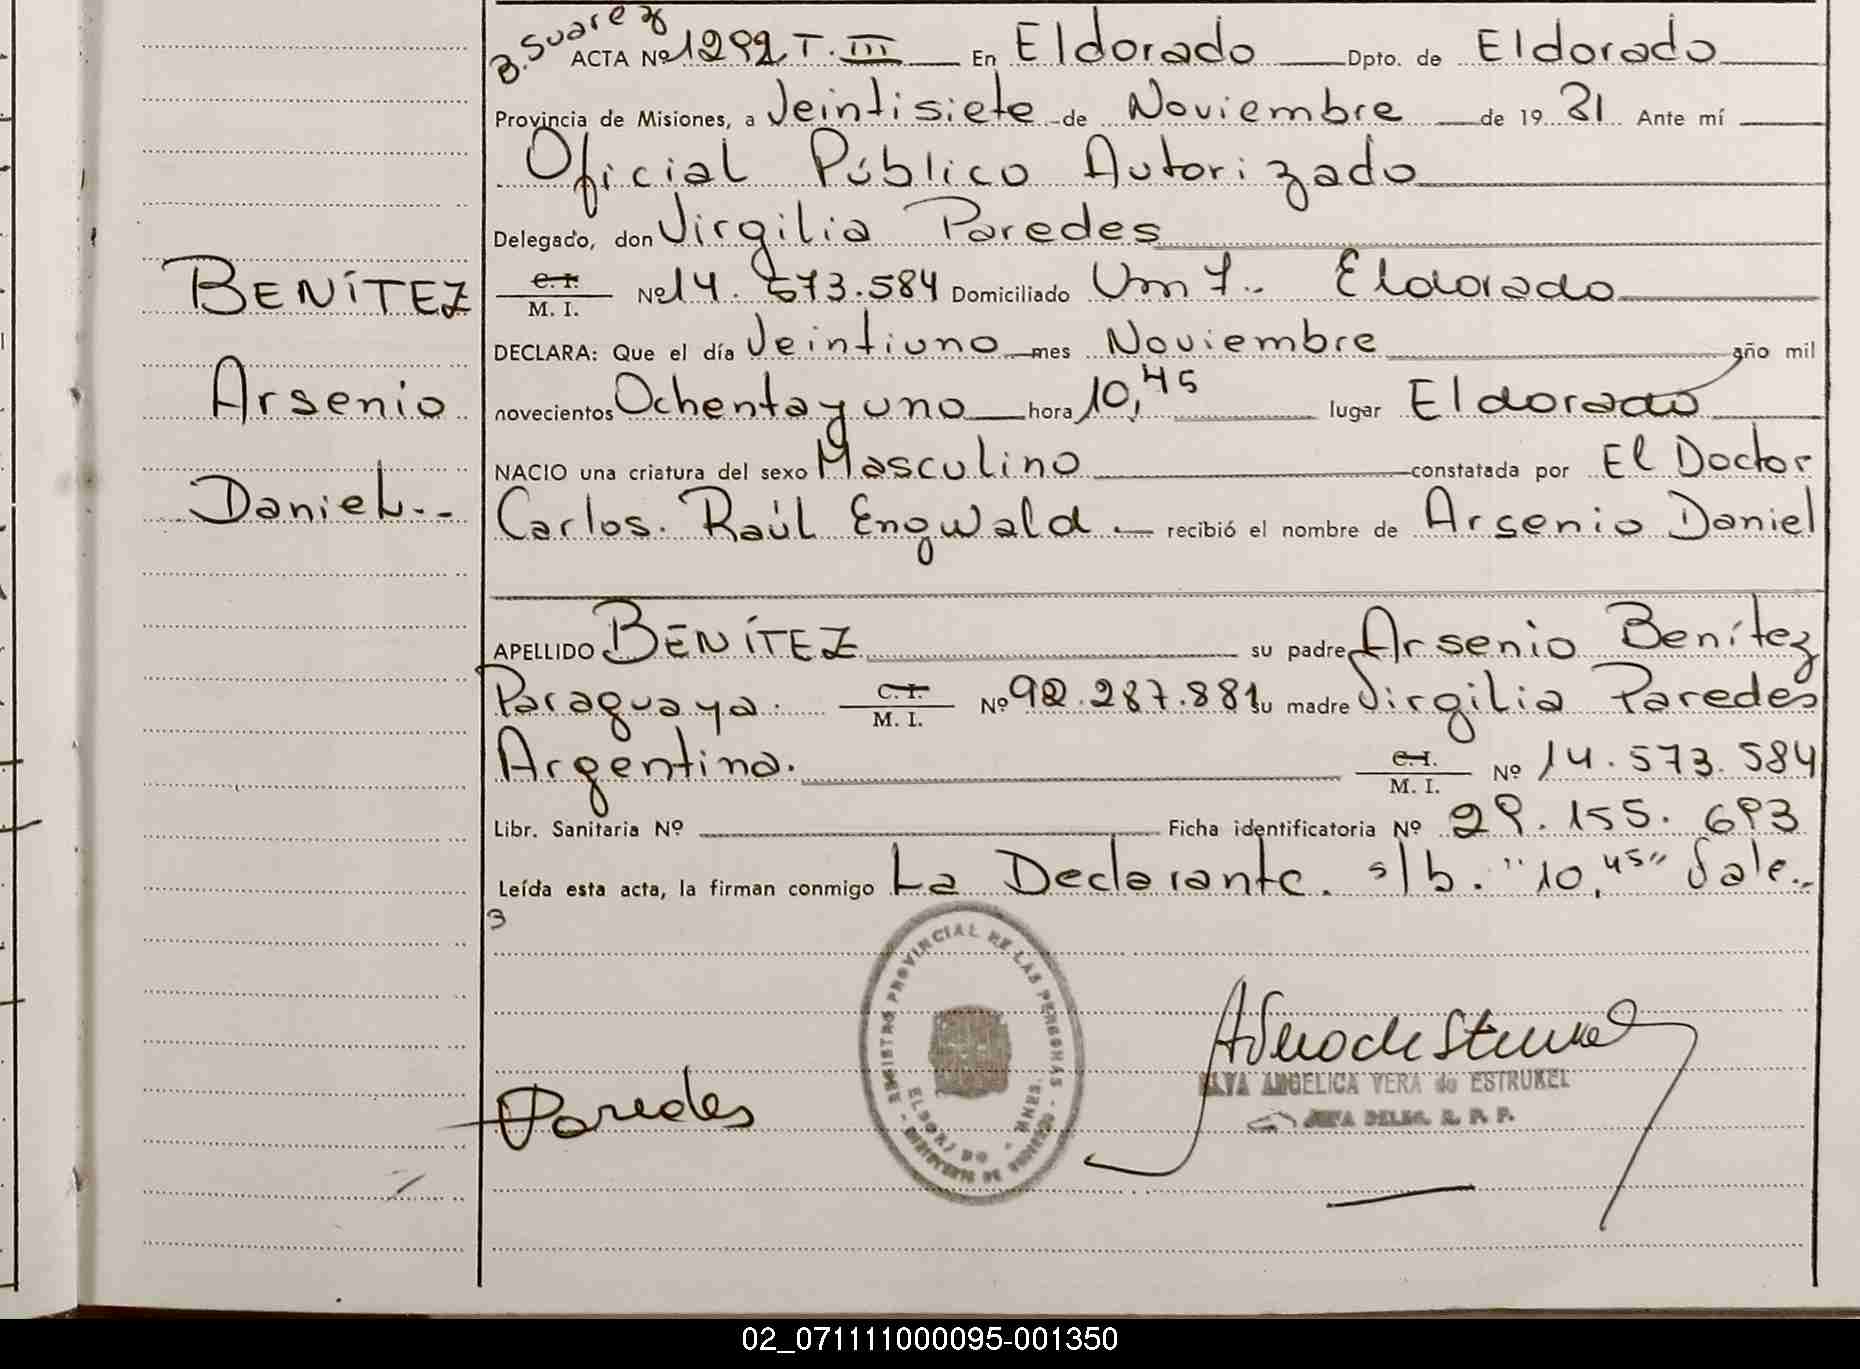 B. Suarez
ACTA Nº 1292 T. III En Eldorado Dpto. de Eldorado
Provincia de Misiones, a Veintisiete de Noviembre de 19 81 Ante mí
Oficial Público Autorizado
Delegado, don Virgilia Paredes
C. I. M. I. Nº 14.573.584 Domiciliado Km 7.. Eldorado
DECLARA: Que el día Veintiuno mes Noviembre año mil
novecientos Ochenta y uno hora 10,45 lugar Eldorado
NACIO una criatura del sexo Masculino constatada por El Doctor
Carlos. Raúl Engwald recibió el nombre de Arsenio Daniel
APELLIDO BENÍTEZ su padre Arsenio Benítez
Paraguaya. C. I. M. I. Nº 92.287.881 su madre Virgilia Paredes
Argentina. C. I. M. I. Nº 14.573.584
Libr. Sanitaria Nº Ficha identificatoria Nº 29.155.693
Leída esta acta, la firman conmigo La Declarante. s/b. "10,45" Vale..
BENÍTEZ
Arsenio
Daniel..
3
REGISTRO PROVINCIAL DE LAS PERSONAS
ELDORADO - MNES.
Paredes
ANGELICA VERA de ESTRUKEL
JEFA DELEG. R. P. P.
02_071111000095-001350